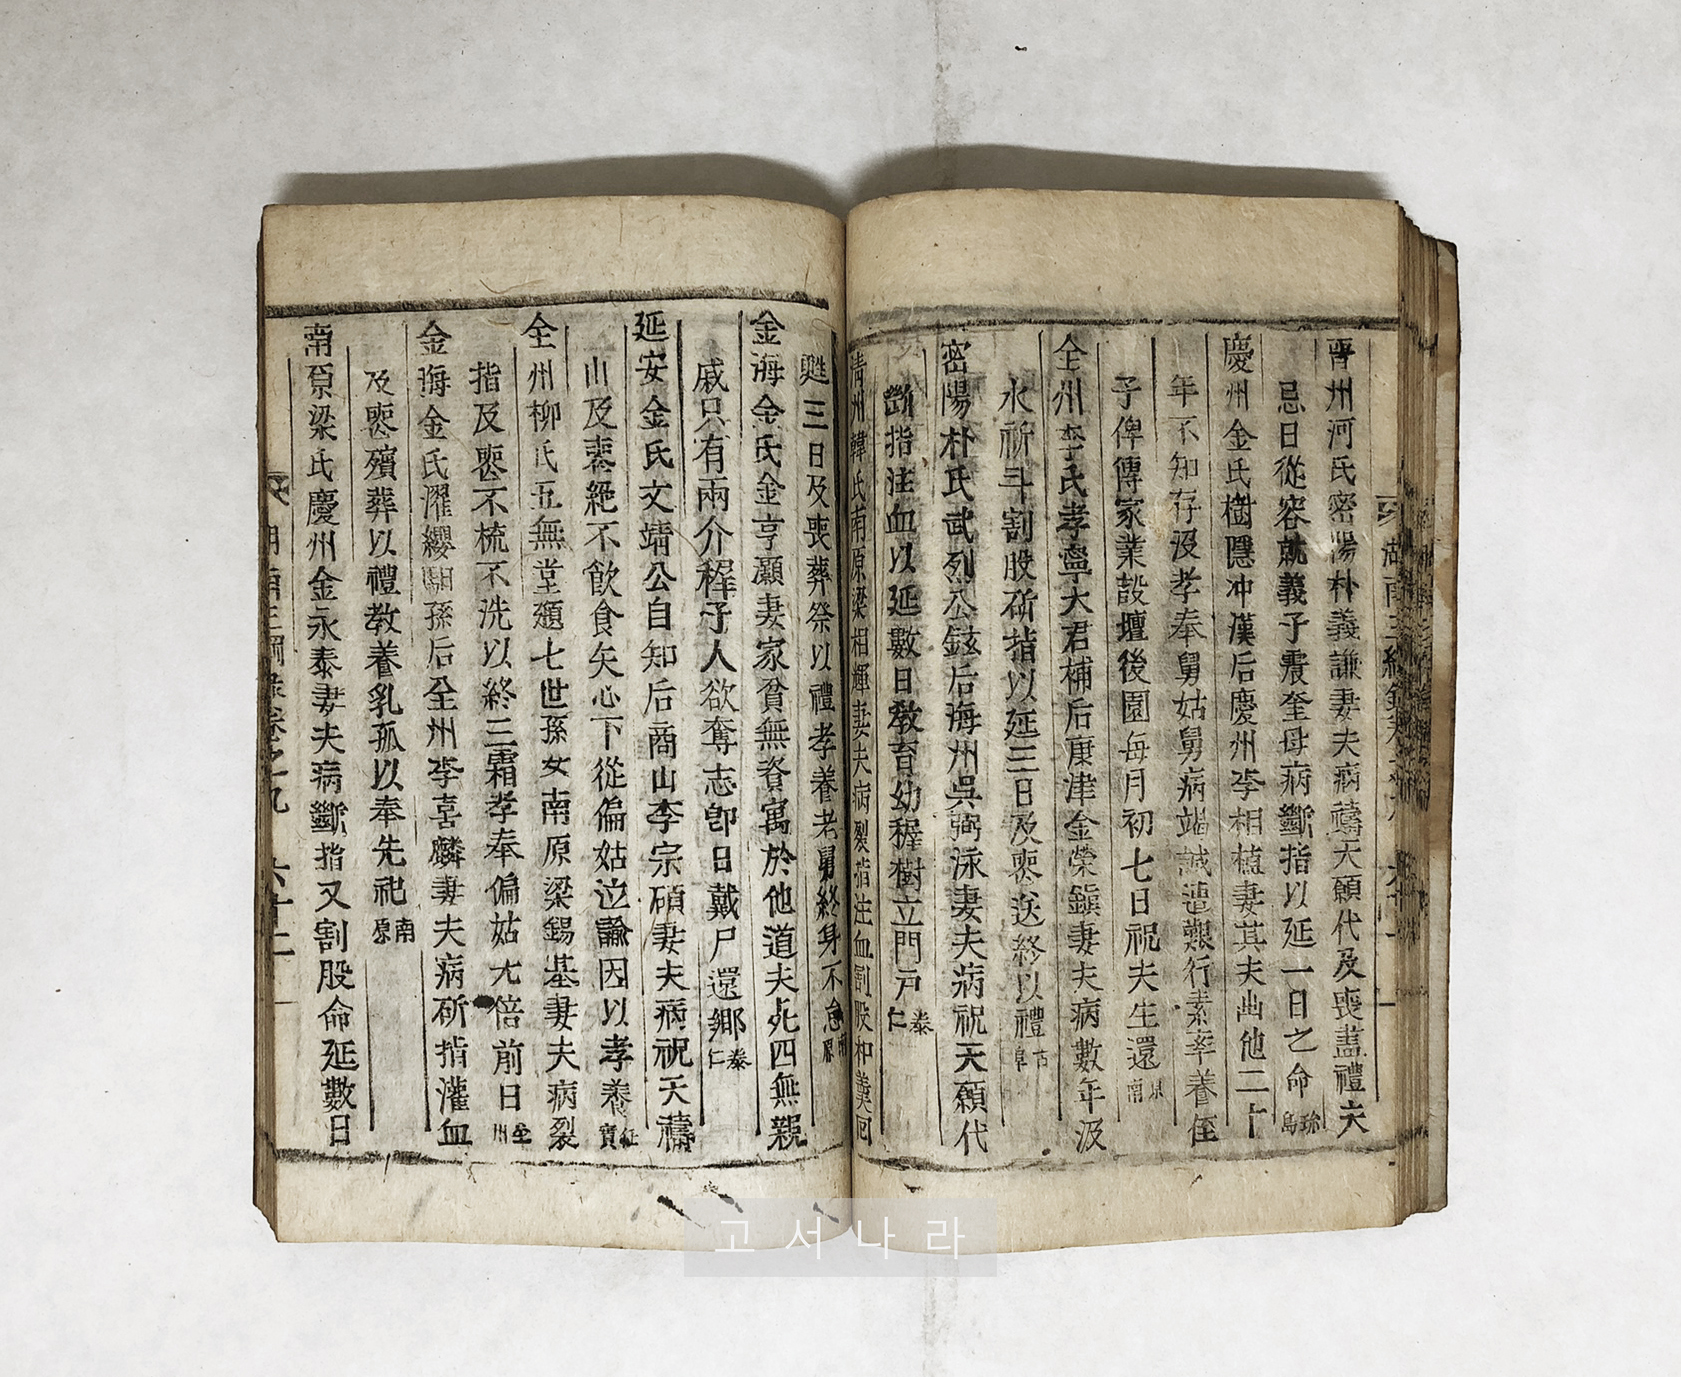 湖南三綱錄
晉州河氏密陽朴義謙妻夫病禱天願代及喪盡禮大
忌日從容就義子震奎母病斷指以延一日之命 珍島
慶州金氏樹隱冲漢后慶州李相植妻其夫出他二十
年不知存沒孝奉舅姑舅病竭誠遭艱行素率養侄
子俾傳家業設壇後園每月初七日祝夫生還 南原
全州李氏孝寧大君補后康津金榮鎭妻夫病數年汲
水祈斗割股斫指以延三日及喪送終以禮 古阜
密陽朴氏武烈公鉉后海州吳弼泳妻夫病祝天願代
斷指注血以延數日敎育幼穉樹立門戶 泰仁
淸州韓氏南原梁相輝妻夫病裂指注血割股和羹回
甦三日及喪葬祭以禮孝養老舅終身不怠 南原
金海金氏金亨灝妻家貧無資寓於他道夫死四無親
戚只有兩介穉子人欲奪志卽日戴尸還鄕 泰仁
延安金氏文靖公自知后商山李宗碩妻夫病祝天禱
山及喪絶不飮食矢心下從偏姑泣諭因以孝養 任實
全州柳氏五無堂䫙七世孫女南原梁錫基妻夫病裂
指及喪不梳不洗以終三霜孝奉偏姑尤倍前日 全州
金海金氏濯纓馹孫后全州李喜麟妻夫病斫指灌血
及喪殯葬以禮敎養乳孤以奉先祀 南原
南原梁氏慶州金永泰妻夫病斷指又割股命延數日
湖南三綱錄卷之九 六十二
고서나라